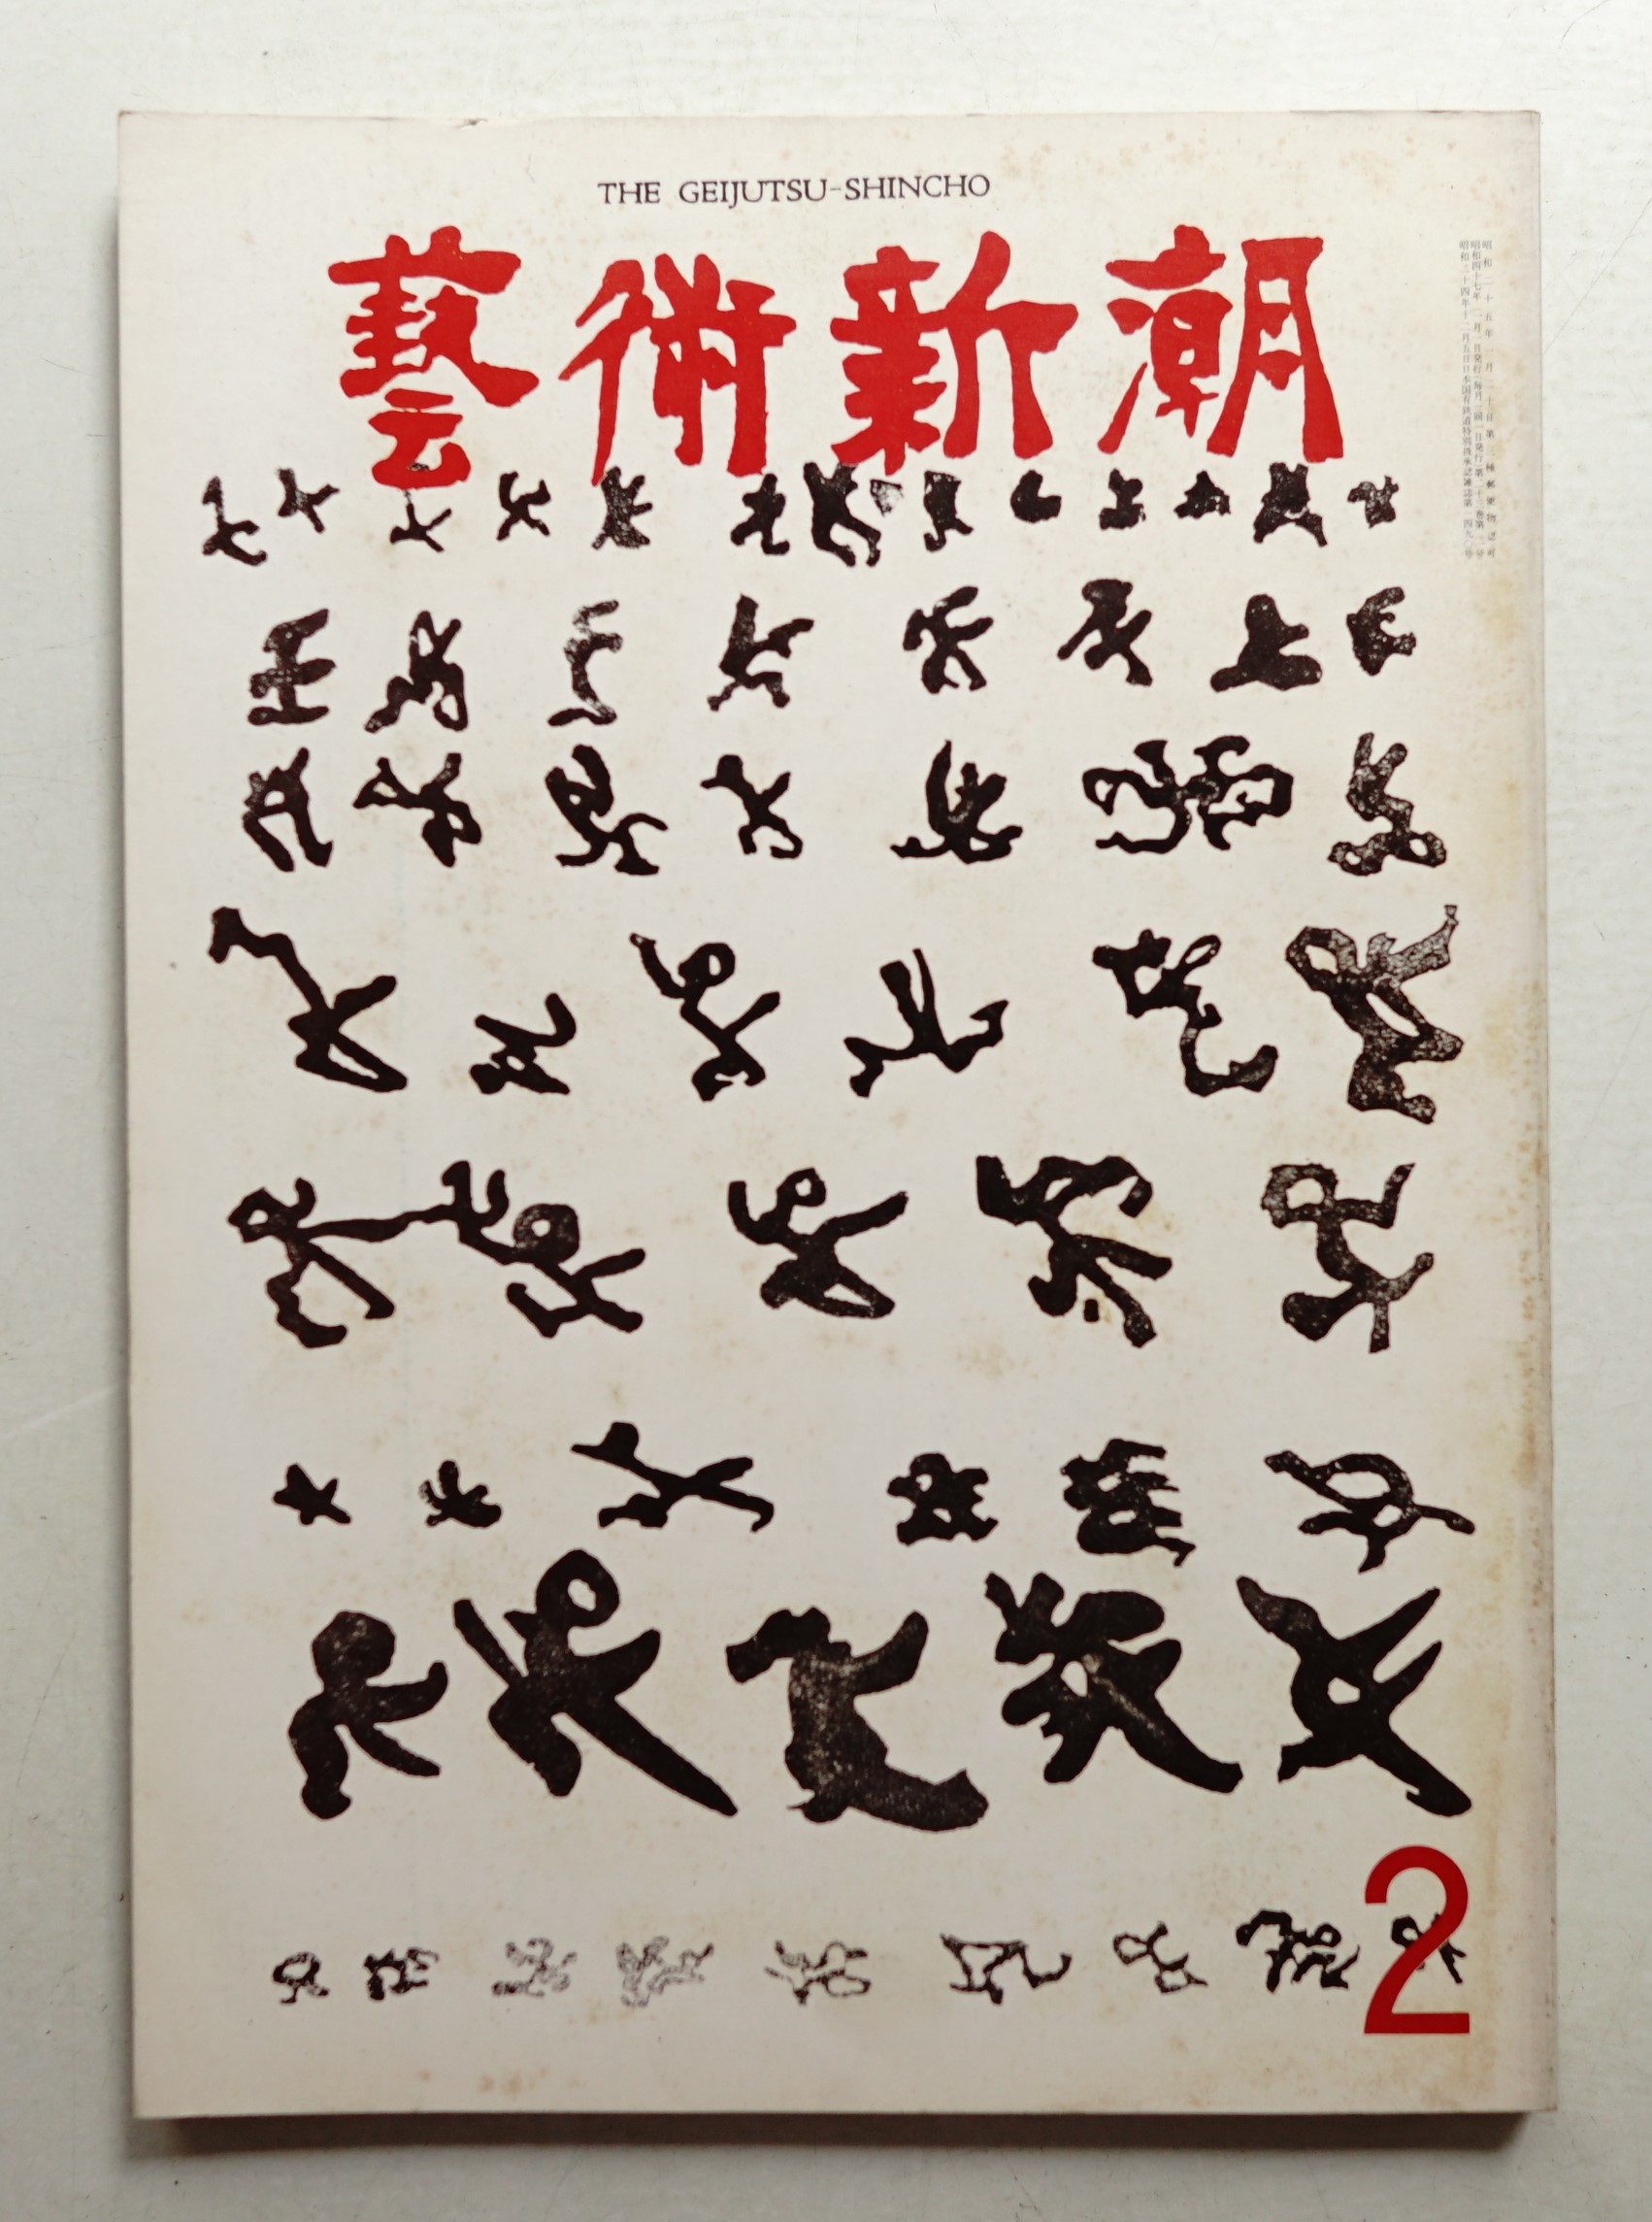 THE GEIJUTSU-SHINCHO
藝術新潮
昭和二十五年一月二十日第三種郵便物認可
昭和四十七年二月一日発行(毎月一回一日発行)第二十三巻第二号
昭和三十四年十二月五日日本国有鉄道特別扱承認雑誌第一四九〇号
2